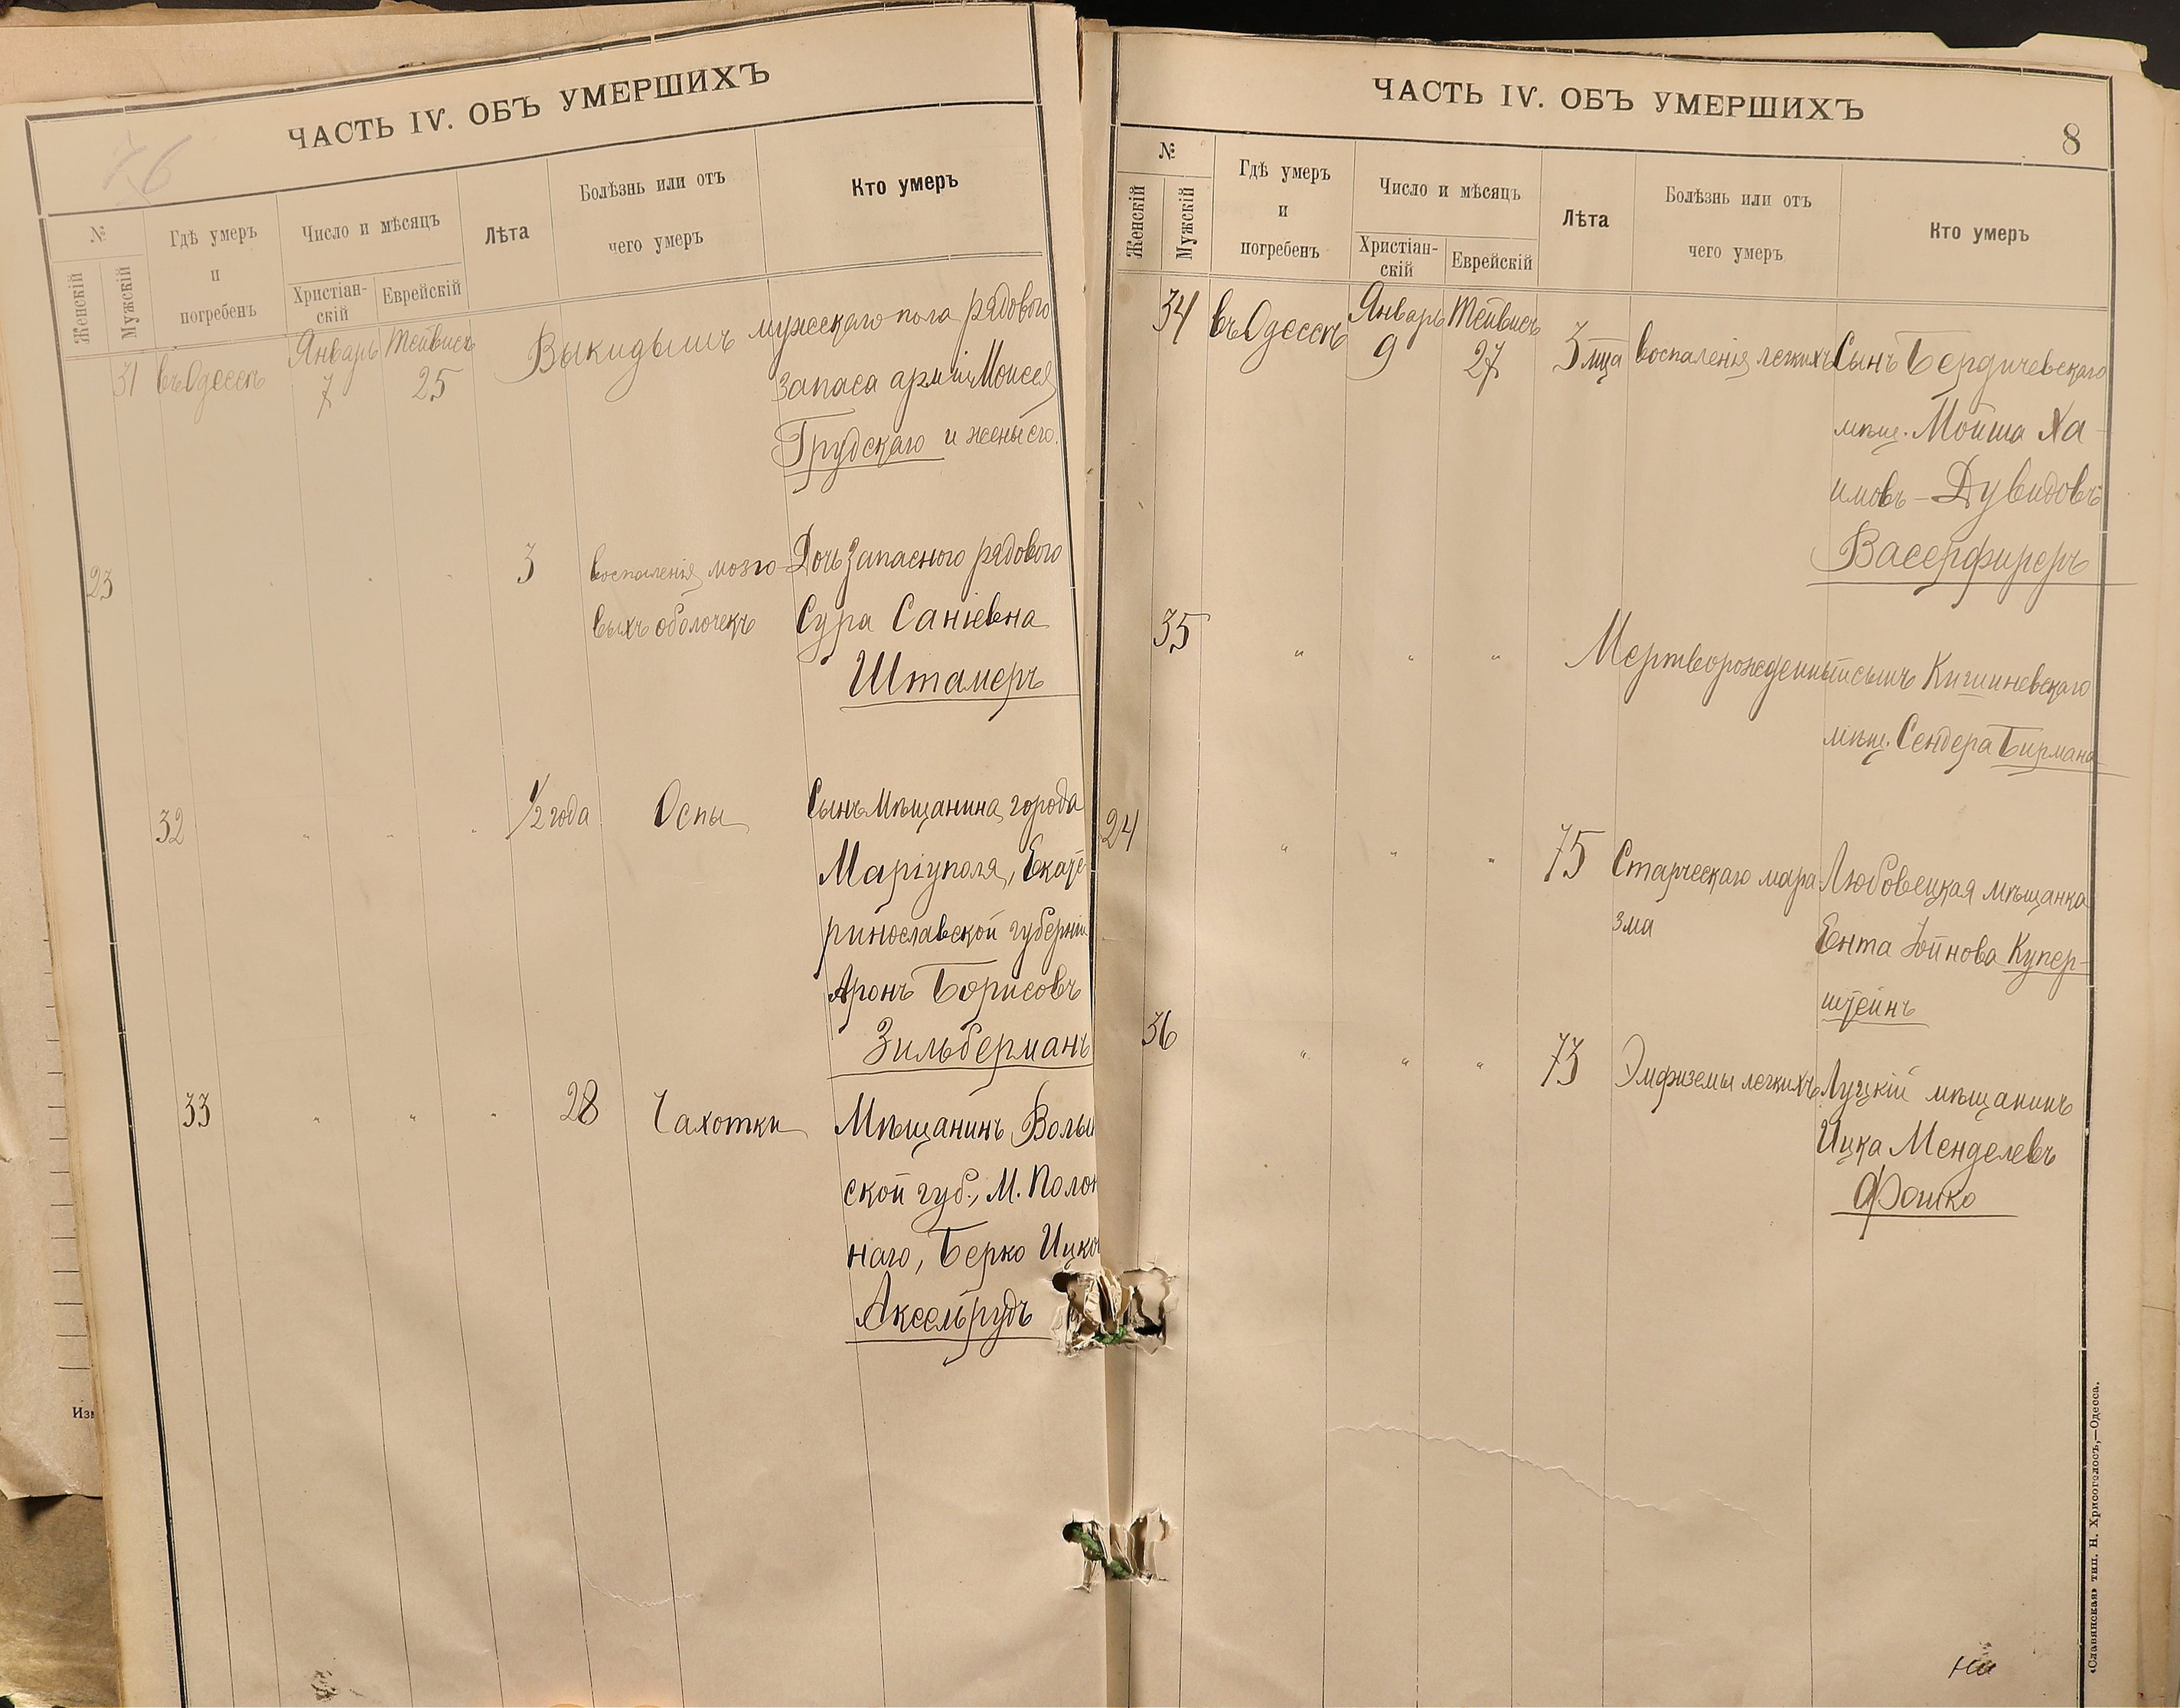 ЧАСТЬ IV. ОБЪ УМЕРШИХЪ
76
№
Женскій
Мужскій
Гдѣ умеръ
и
погребенъ
Число и мѣсяцъ
Христіан-
скій
Еврейскій
Лѣта
Болѣзнь или отъ
чего умеръ
Кто умеръ
31 въ Одессѣ Январь 7 Тейвисъ 25 Выкидышъ мужескаго пола рядового
запаса арміи Моисея
Грудскаго и жены его.
23 " " " 3 воспаленія мозго- Дочь запасного рядового
выхъ оболочекъ Сура Саніевна
Штамеръ
32 " " " 1/2 года Оспы Сынъ мѣщанина города
Маріуполя, Екате-
ринославской губерніи
Аронъ Борисовъ
Зильберманъ
33 " " " 28 Чахотки Мѣщанинъ Волын
ской губ., М. Полон
наго, Берко Ицков
Аксельрудъ
Изм
ЧАСТЬ IV. ОБЪ УМЕРШИХЪ
8
№
Женскій
Мужскій
Гдѣ умеръ
и
погребенъ
Число и мѣсяцъ
Христіан-
скій
Еврейскій
Лѣта
Болѣзнь или отъ
чего умеръ
Кто умеръ
34 въ Одессѣ Январь 9 Тейвисъ 27 3 мца воспаленія легкихъ Сынъ Бердичевскаго
мѣщ. Мойша Ха-
имовъ-Дувидовъ
Васерфиреръ
35 " " " Мертворожденный сынъ Кишиневскаго
мѣщ. Сендера Бирмана
24 " " " 75 Старческаго мара- Любовецкая мѣщанка
зма Ента Іойнова Купер-
штейнъ
36 " " " 73 Эмфиземы легкихъ Луцкій мѣщанинъ
Ицка Менделевъ
Фошко
«Славянская» тип. Н. Хрисогелосъ,—Одесса.